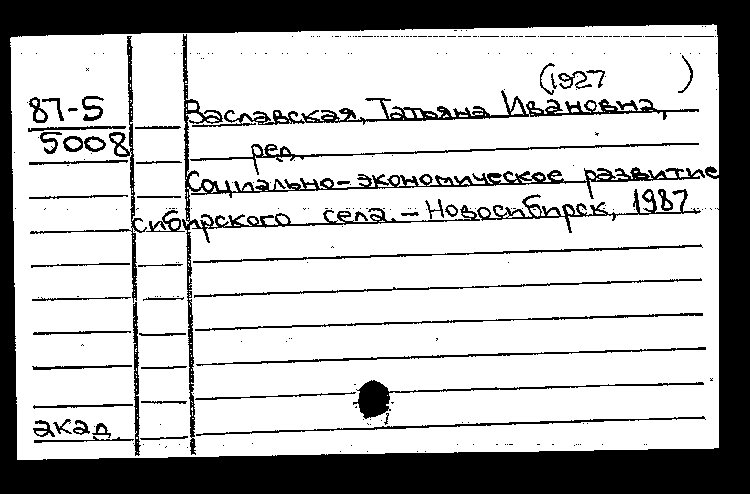 (1927 )
87-5 Заславская, Татьяна Ивановна,
5008 ред.
Социально-экономическое развитие
сибирского села. - Новосибирск, 1987.
акад.